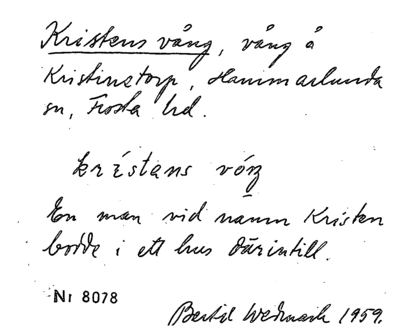 Kristens vång, vång å
Kristinetorp, Hammarlunda
sn, Frosta hd.
krístans vóŋ
En man vid namn Kristen
bodde i ett hus därintill.
Nr 8078
Bertil Wedmark 1959.